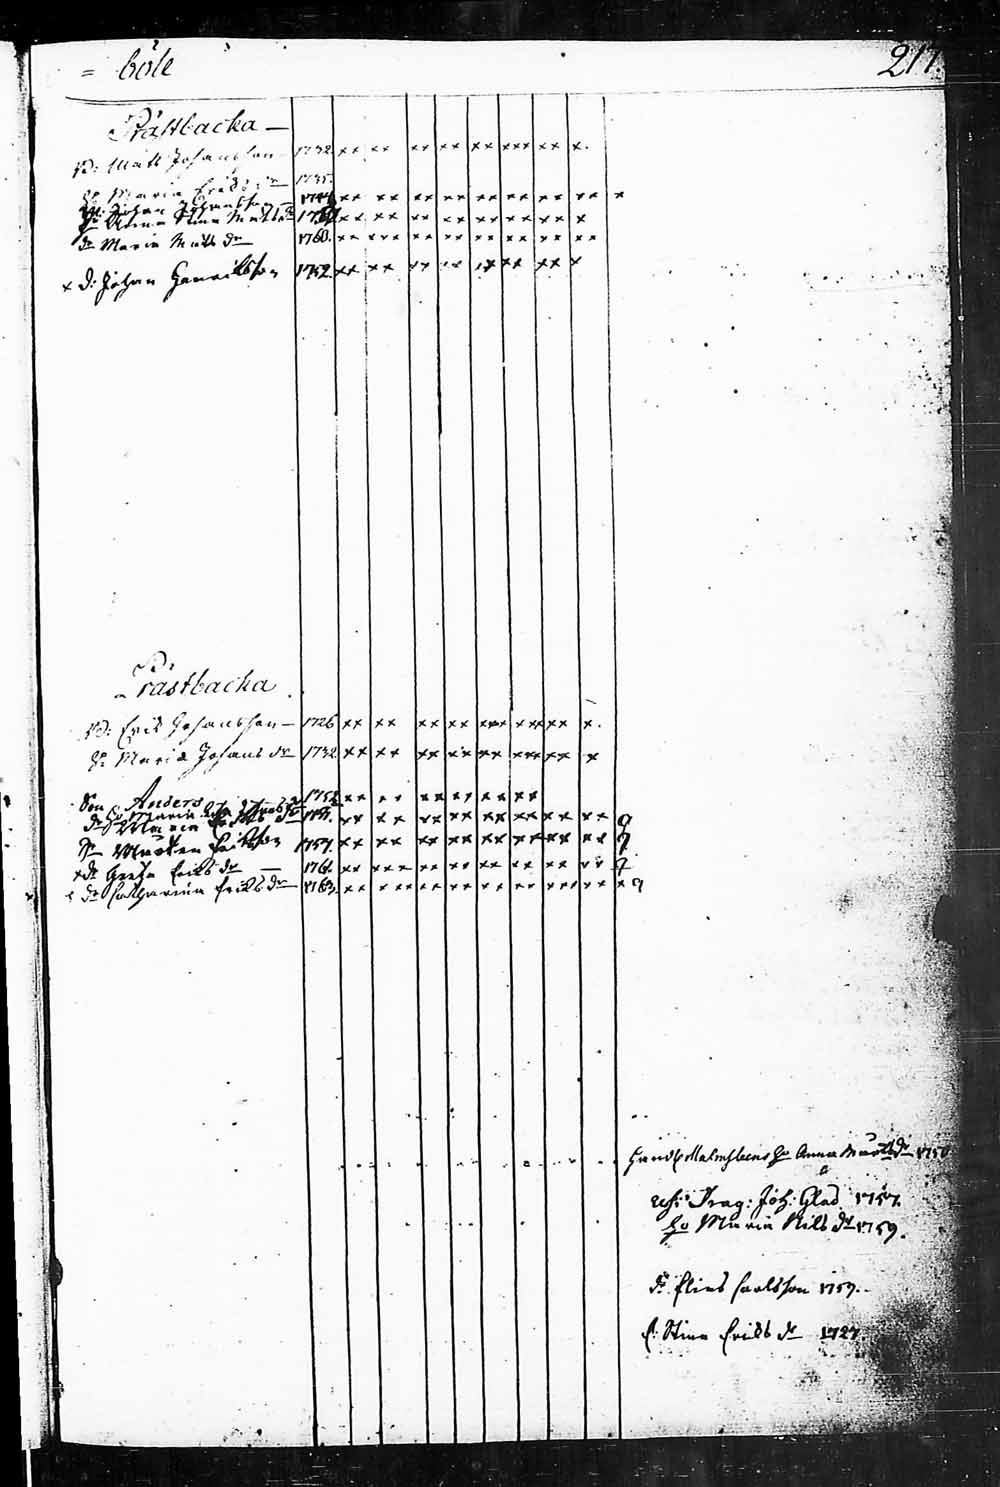 = böle 217.
Prästbacka —
Bd: Matts Johansson 1732. xx xx xx xx xx xxx xx x.
H: Maria Erics dr 1735.
Johan Johansson xx xx xx xx xx xx xx xx x
Hu Anna Stina Matts dr xx xx xx xx xx xx xx x
dr Maria Matts dr 1760. xx xxx xx xx xx xx xx xx
x d: Johan Henriksson 1752 xx xx xx xx xx xx xx x
Prästbacka
Bd: Eric Johansson — 1726 xx xx xx xx xxx xxxx xx x.
H: Maria Johans dr 1732 xx xx xx xx xx xxxxx x
Son Anders 1752 xx xx xx xx xx xx
dr Maria Erics dr xx xx xx xx xx xx xx xx
Sn Mårten Ericsson 1757. xx xx xx xx xx xx xx xx
x dr Greta Erics dr — 1761. xx xxx xx xx xx xx xx xx
x dr Catharina Erics dr 1763. xx xxx xx xx xx xx xxx xx x
Malmsteens Hu Anna Mårts dr 1750
Drag: Joh: Glad 1757.
Hu Maria Nils dr 1759.
d: Elias Carlsson 1759.
E: Stina Erics dr 1727